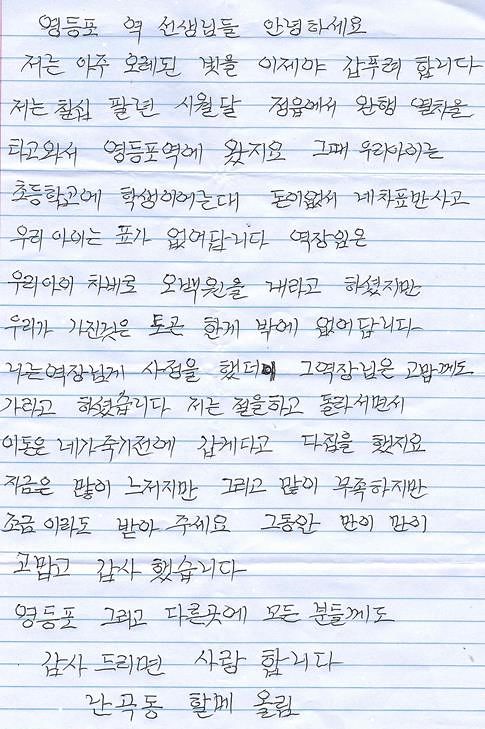 영등포 역 선생님들 안녕하세요
저는 아주 오레된 빗을 이제야 갑푸려 합니다
저는 칠십 팔년 시월달 정읍에서 완행 열차을
타고와서 영등포역에 왔지요 그때 우리아이는
초등학교에 학생이어는대 돈이없서 네차표만사고
우리 아이는 표가 없어답니다 역장임은
우리아이 차비로 오백원을 내라고 하셨지만
우리가 가진것은 토큰 한게 밖에 없어답니다
나는역장님게 사정을 했더니 그역장님은 고맙께도
가라고 하셨습니다 저는 절을하고 돌라서면서
이돈은 네가죽기전에 갑게다고 다짐을 했지요
지금은 많이 느저지만 그리고 많이 부족하지만
조금 이라도 받아 주세요 그동안 만이 만이
고맙고 감사 했습니다
영등포 그리고 다른곳에 모든 분들께도
감사 드리면 사랑 합니다
난곡동 할메 올림